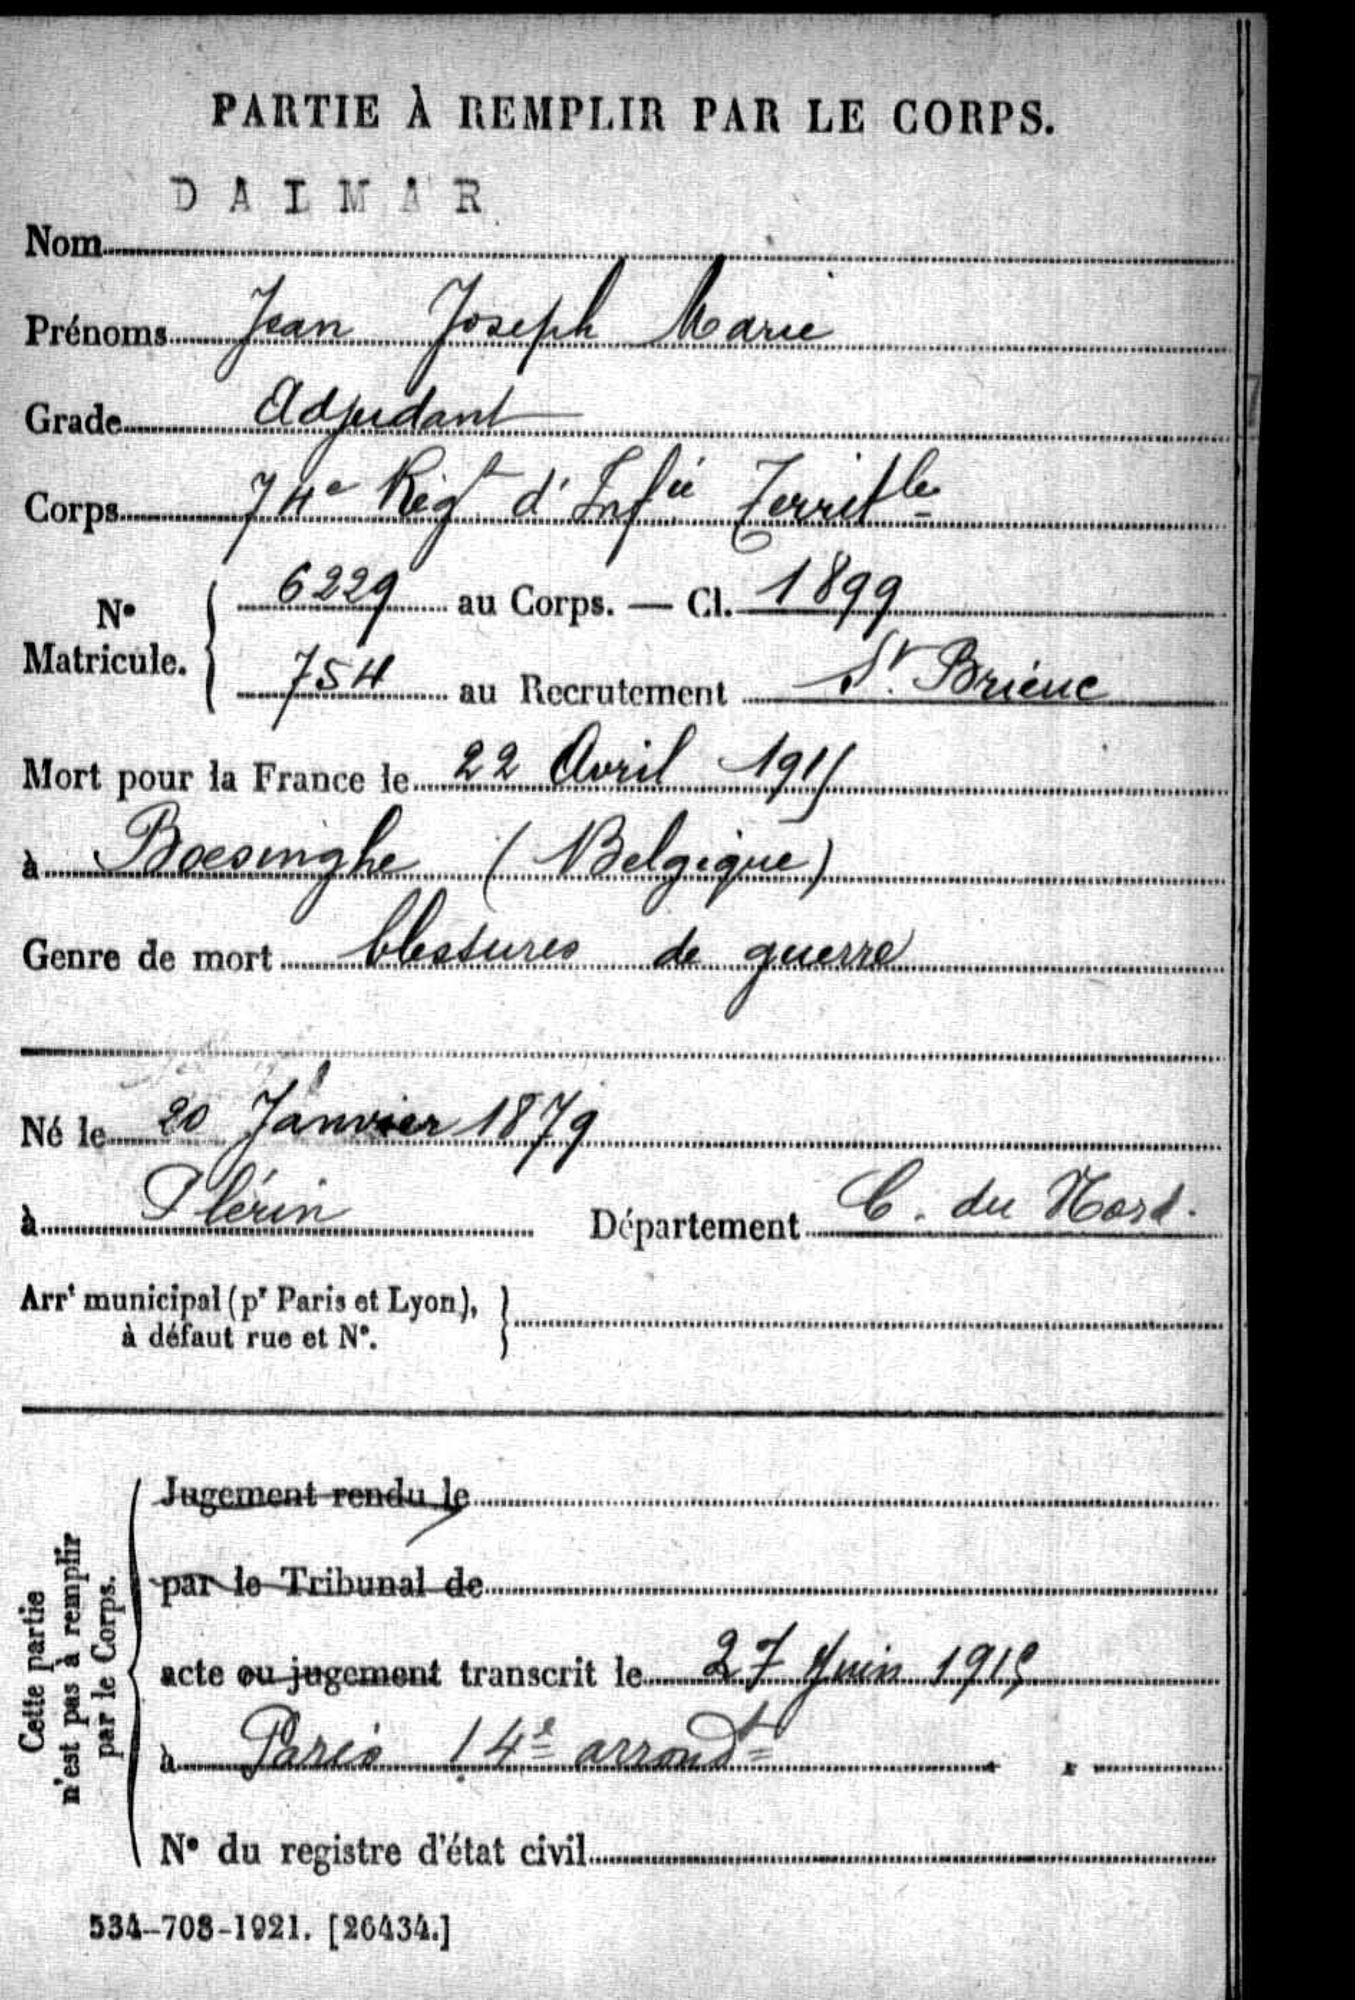 PARTIE À REMPLIR PAR LE CORPS.
DALMAR
Nom
Prénoms Jean Joseph Marie
Grade Adjudant
Corps 74e Régt d'Infie Territle
N° Matricule. { 6229 au Corps. — Cl. 1899
754 au Recrutement St. Brieuc
Mort pour la France le 22 Avril 1915
à Boesinghe (Belgique)
Genre de mort blessures de guerre
Né le 20 Janvier 1879
à Plérin Département C. du Nord.
Arrt municipal (pr Paris et Lyon), à défaut rue et N°. }
Cette partie n'est pas à remplir par le Corps.
Jugement rendu le
par le Tribunal de
acte ou jugement transcrit le 27 Juin 1915
à Paris 14e arrondt
N° du registre d'état civil
534-708-1921. [26434.]